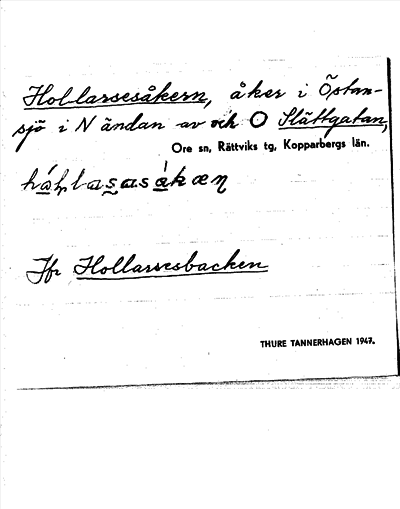 Hol-larsesåkern, åker i Östan-
sjö i N ändan av och O Slättgatan,
Ore sn, Rättviks tg, Kopparbergs län.
Jfr Hollarsesbacken
THURE TANNERHAGEN 1947.